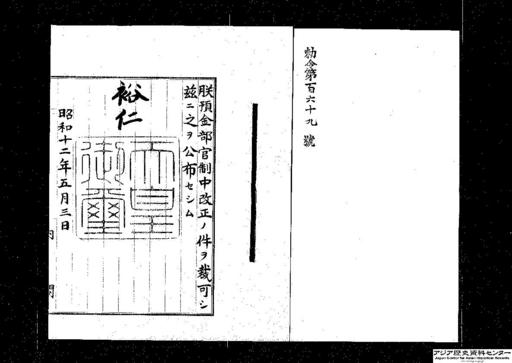 勅令第百六十九號
朕預金部官制中改正ノ件ヲ裁可シ
茲ニ之ヲ公布セシム
裕仁
天皇御璽
昭和十二年五月三日
内閣
アジア歴史資料センター
Japan Center for Asian Historical Records